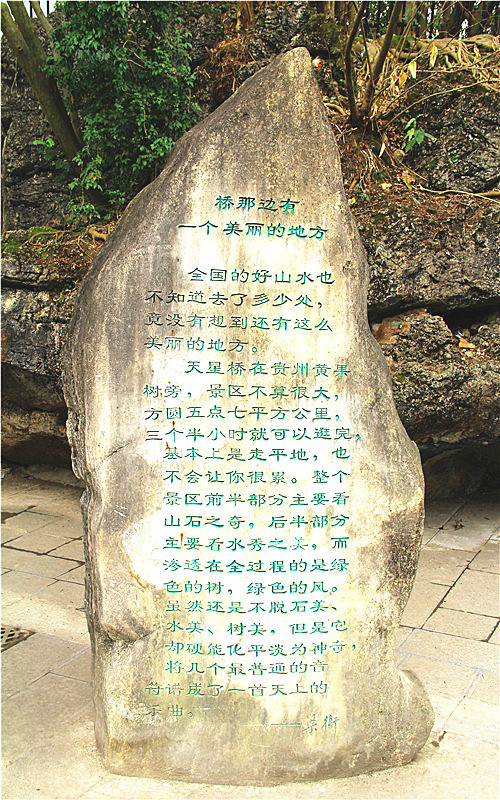 桥那边有
一个美丽的地方
全国的好山水也
不知道去了多少处，
竟没有想到还有这么
美丽的地方。
天星桥在贵州黄果
树旁，景区不算很大，
方圆五点七平方公里，
三个半小时就可以逛完，
基本上是走平地，也
不会让你很累。整个
景区前半部分主要看
山石之奇，后半部分
主要看水秀之美，而
渗透在全过程的是绿
色的树，绿色的风。
虽然还是不脱石美、
水美、树美，但是它
却硬能化平淡为神奇，
将几个最普通的音
符谱成了一首天上的
乐曲。
——梁衡